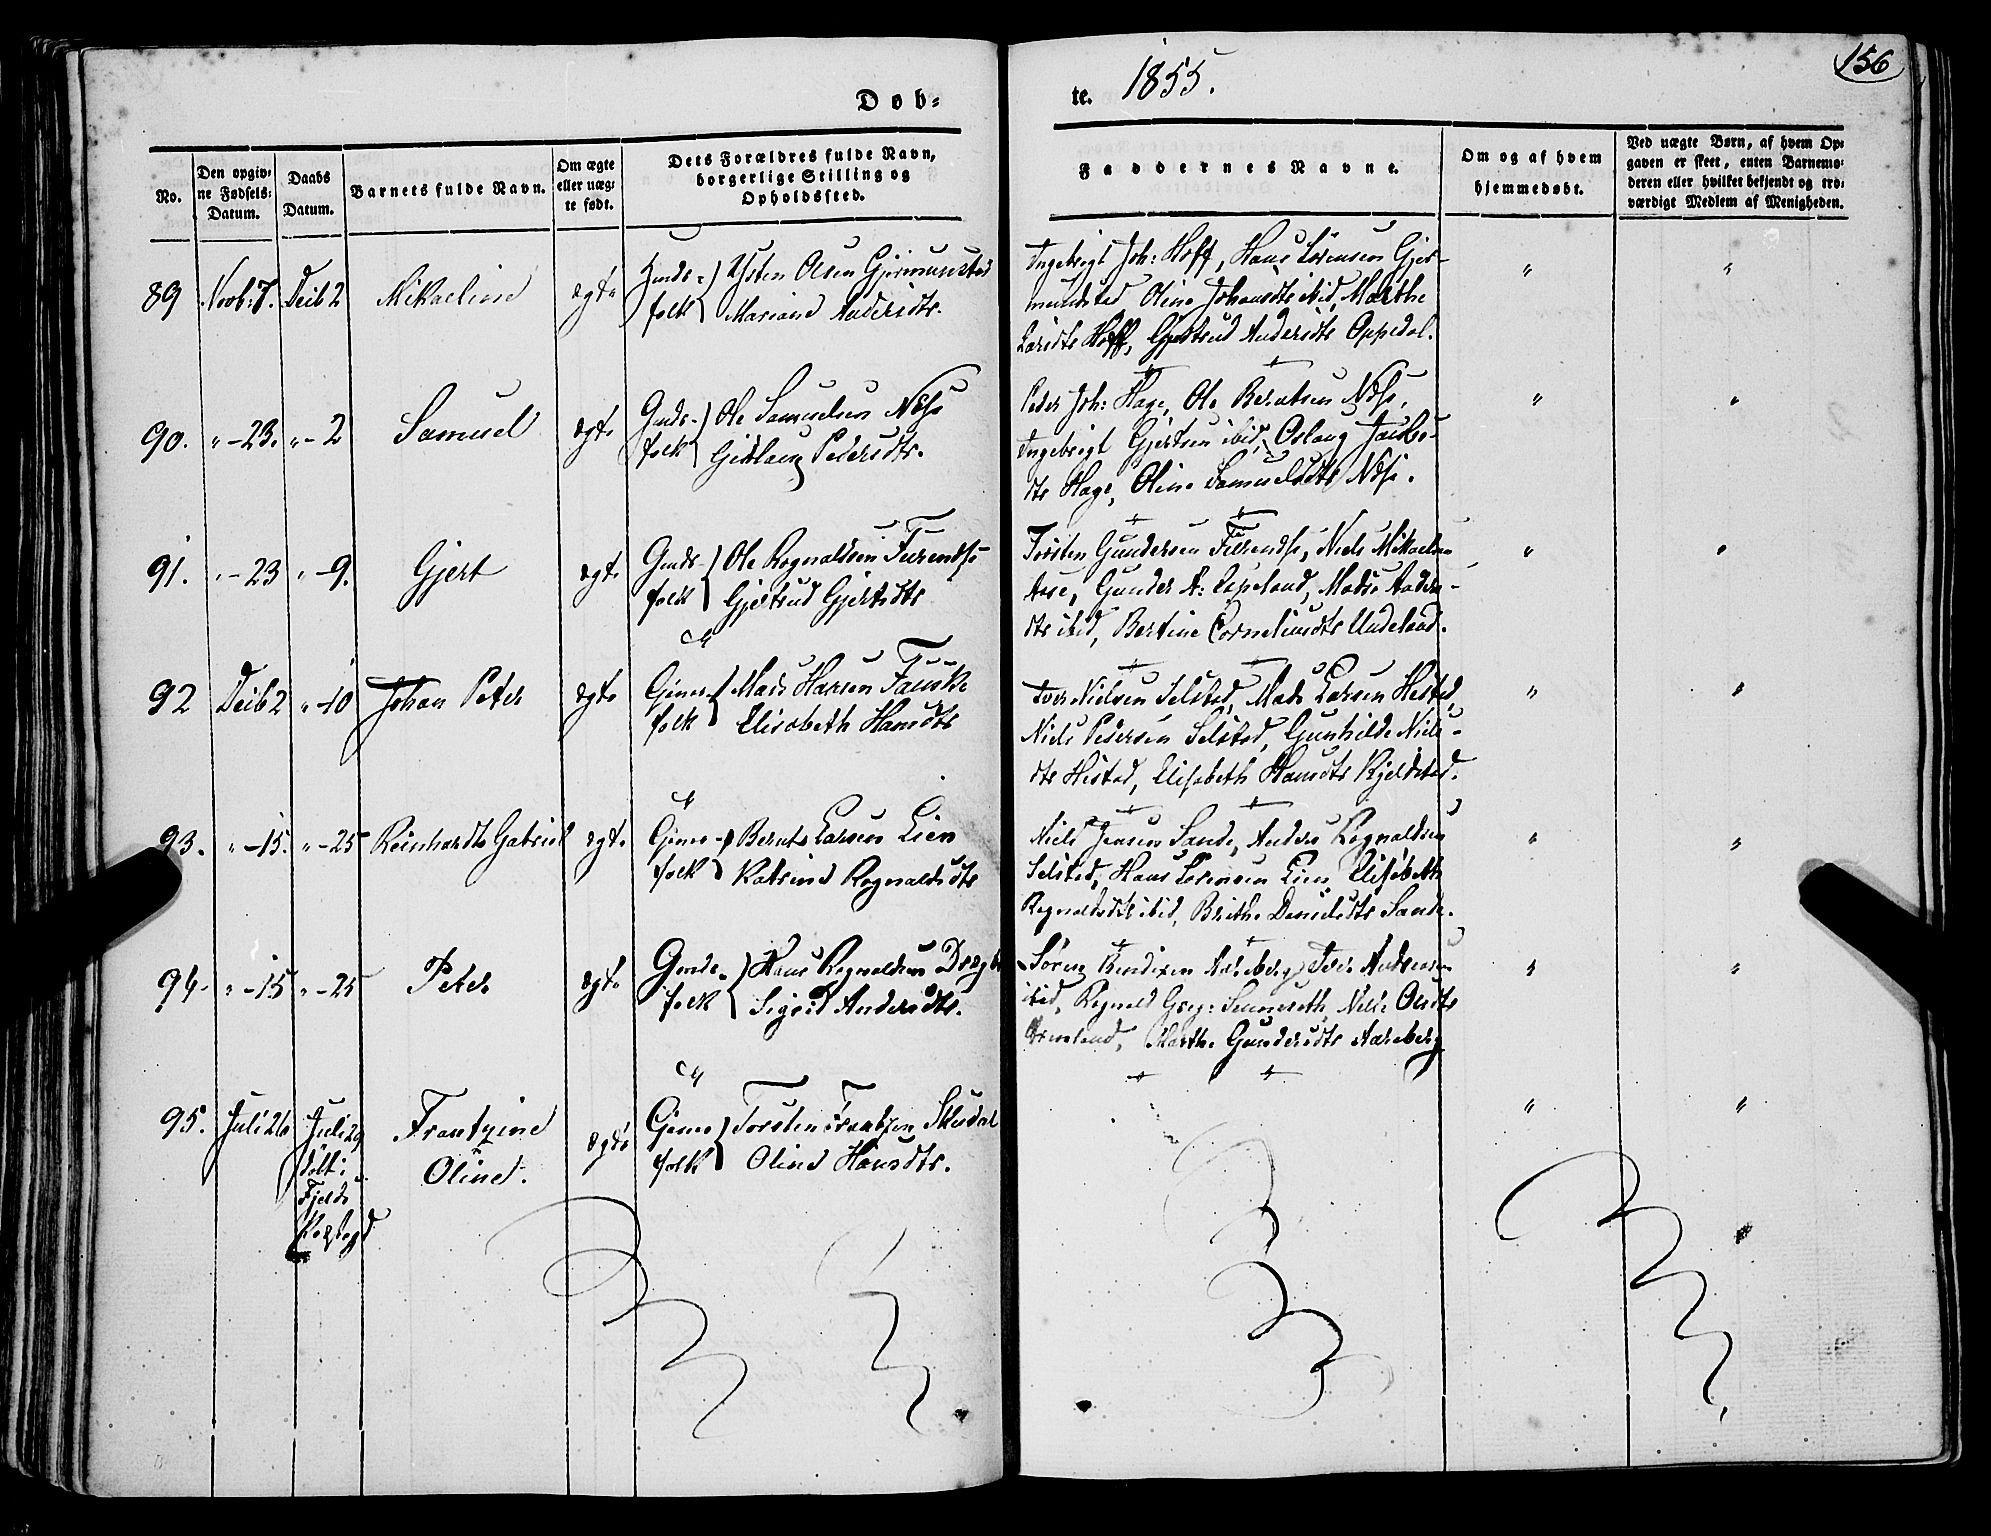 Døb-
te. 1855.
156
No.
Den opgiv-
ne Fødsels-
Datum.
Daabs
Datum.
Barnets fulde Navn.
Om ægte
eller uæg-
te født.
Dets Forældres fulde Navn,
borgerlige Stilling og
Opholdssted.
Faddernes Navne.
Om og af hvem
hjemmedøbt.
Ved uægte Børn, af hvem Op-
gaven er skeet, enten Barnemo-
deren eller hvilket bekjendt og tro-
værdigt Medlem af Menigheden.
89 Novb: 7. Deib 2 Mikaeline ægte
Gmds-folk Østen Olsen Gjermundstad
Mariane Andersdtr.
Ingebrigt Joh: Hoff, Hans Sörensen Gjer-
mundstad, Oline Johansdtr ibid, Marthe
Larsdtr Hoff, Gjertrud Andersdtr Oppedal.
90. " - 23. " - 2 Samuel ægte
Gmds-folk Ole Samuelsen Ndss
Peder Joh: Hage, Ole Berntsen Ndss,
Ingebrigt Gjertsen ibid, Oslaug Jacobs-
dtr Hage, Oline Samuelsdtr Ndss.
91. " - 23 " - 9. Gjert ægte
Gmds-folk Ole Rognaldsen
Gjertrud Gjertsdtr
Torsten Gundersen Niels Mikaelsen
Aase, Gunder A: Espeland, Madse Anders-
dtr ibid, Bertine Corneliusdtr Undeland.
92 Deib 2 " - 10 Johan Peter ægte
Gjmes-folk Mads Hansen Fauske
Elisabeth Hansdtr
Iver Nielsen Selstad, Mads Larsen Hestad,
Niels Pedersen Selstad, Gunhilde Niels-
dtr Hestad, Elisabeth Hansdtr Kjeldstad.
93. " - 15. " - 25 Reinhardt Gabriel ægte
Gjmes-folk Bernt Larsen Lien
Katrine Rognaldsdtr
Niels Jensen Sande, Anders Rognaldsen
Selstad, Hans Sörensen Lien, Elisabeth
Rognaldsdtr ibid, Brithe Danielsdtr Sande.
94. " - 15 " - 25 Peter ægte
Gmds-folk Hans Rognaldsen
Sigrid Andersdtr.
Sören Bendixen Aareberg, Iver Andersen
ibid, Rognald Greg: Sennereth, Nille Olsdtr
Marthe Gundersdtr Aareberg
95. Juli 26 Juli 29
döbt i
Fjelds
Frantzine
Oline. ægte
Gjmes-folk Torsten Frantzen
Oline Hansdtr.